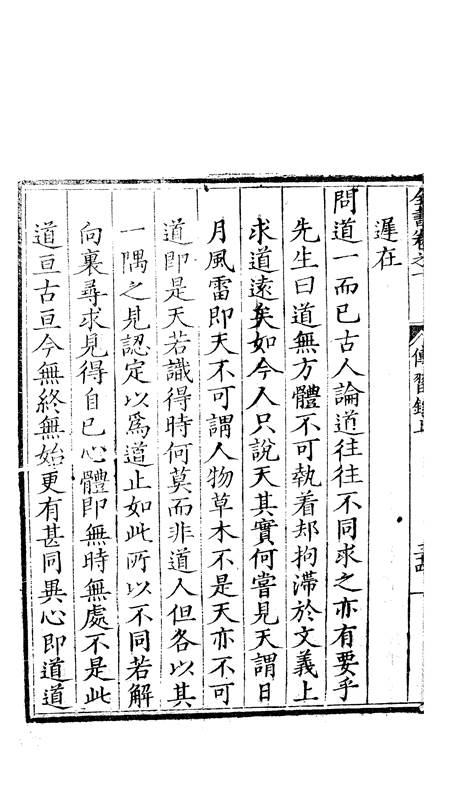 全書卷之一 傳習錄上
遲在
問道一而已古人論道往往不同求之亦有要乎
先生曰道無方體不可執着却拘滯於文義上
求道遠矣如今人只說天其實何嘗見天謂日
月風雷即天不可謂人物草木不是天亦不可
道即是天若識得時何莫而非道人但各以其
一隅之見認定以爲道止如此所以不同若解
向裏尋求見得自己心體即無時無處不是此
道亘古亘今無終無始更有甚同異心即道道